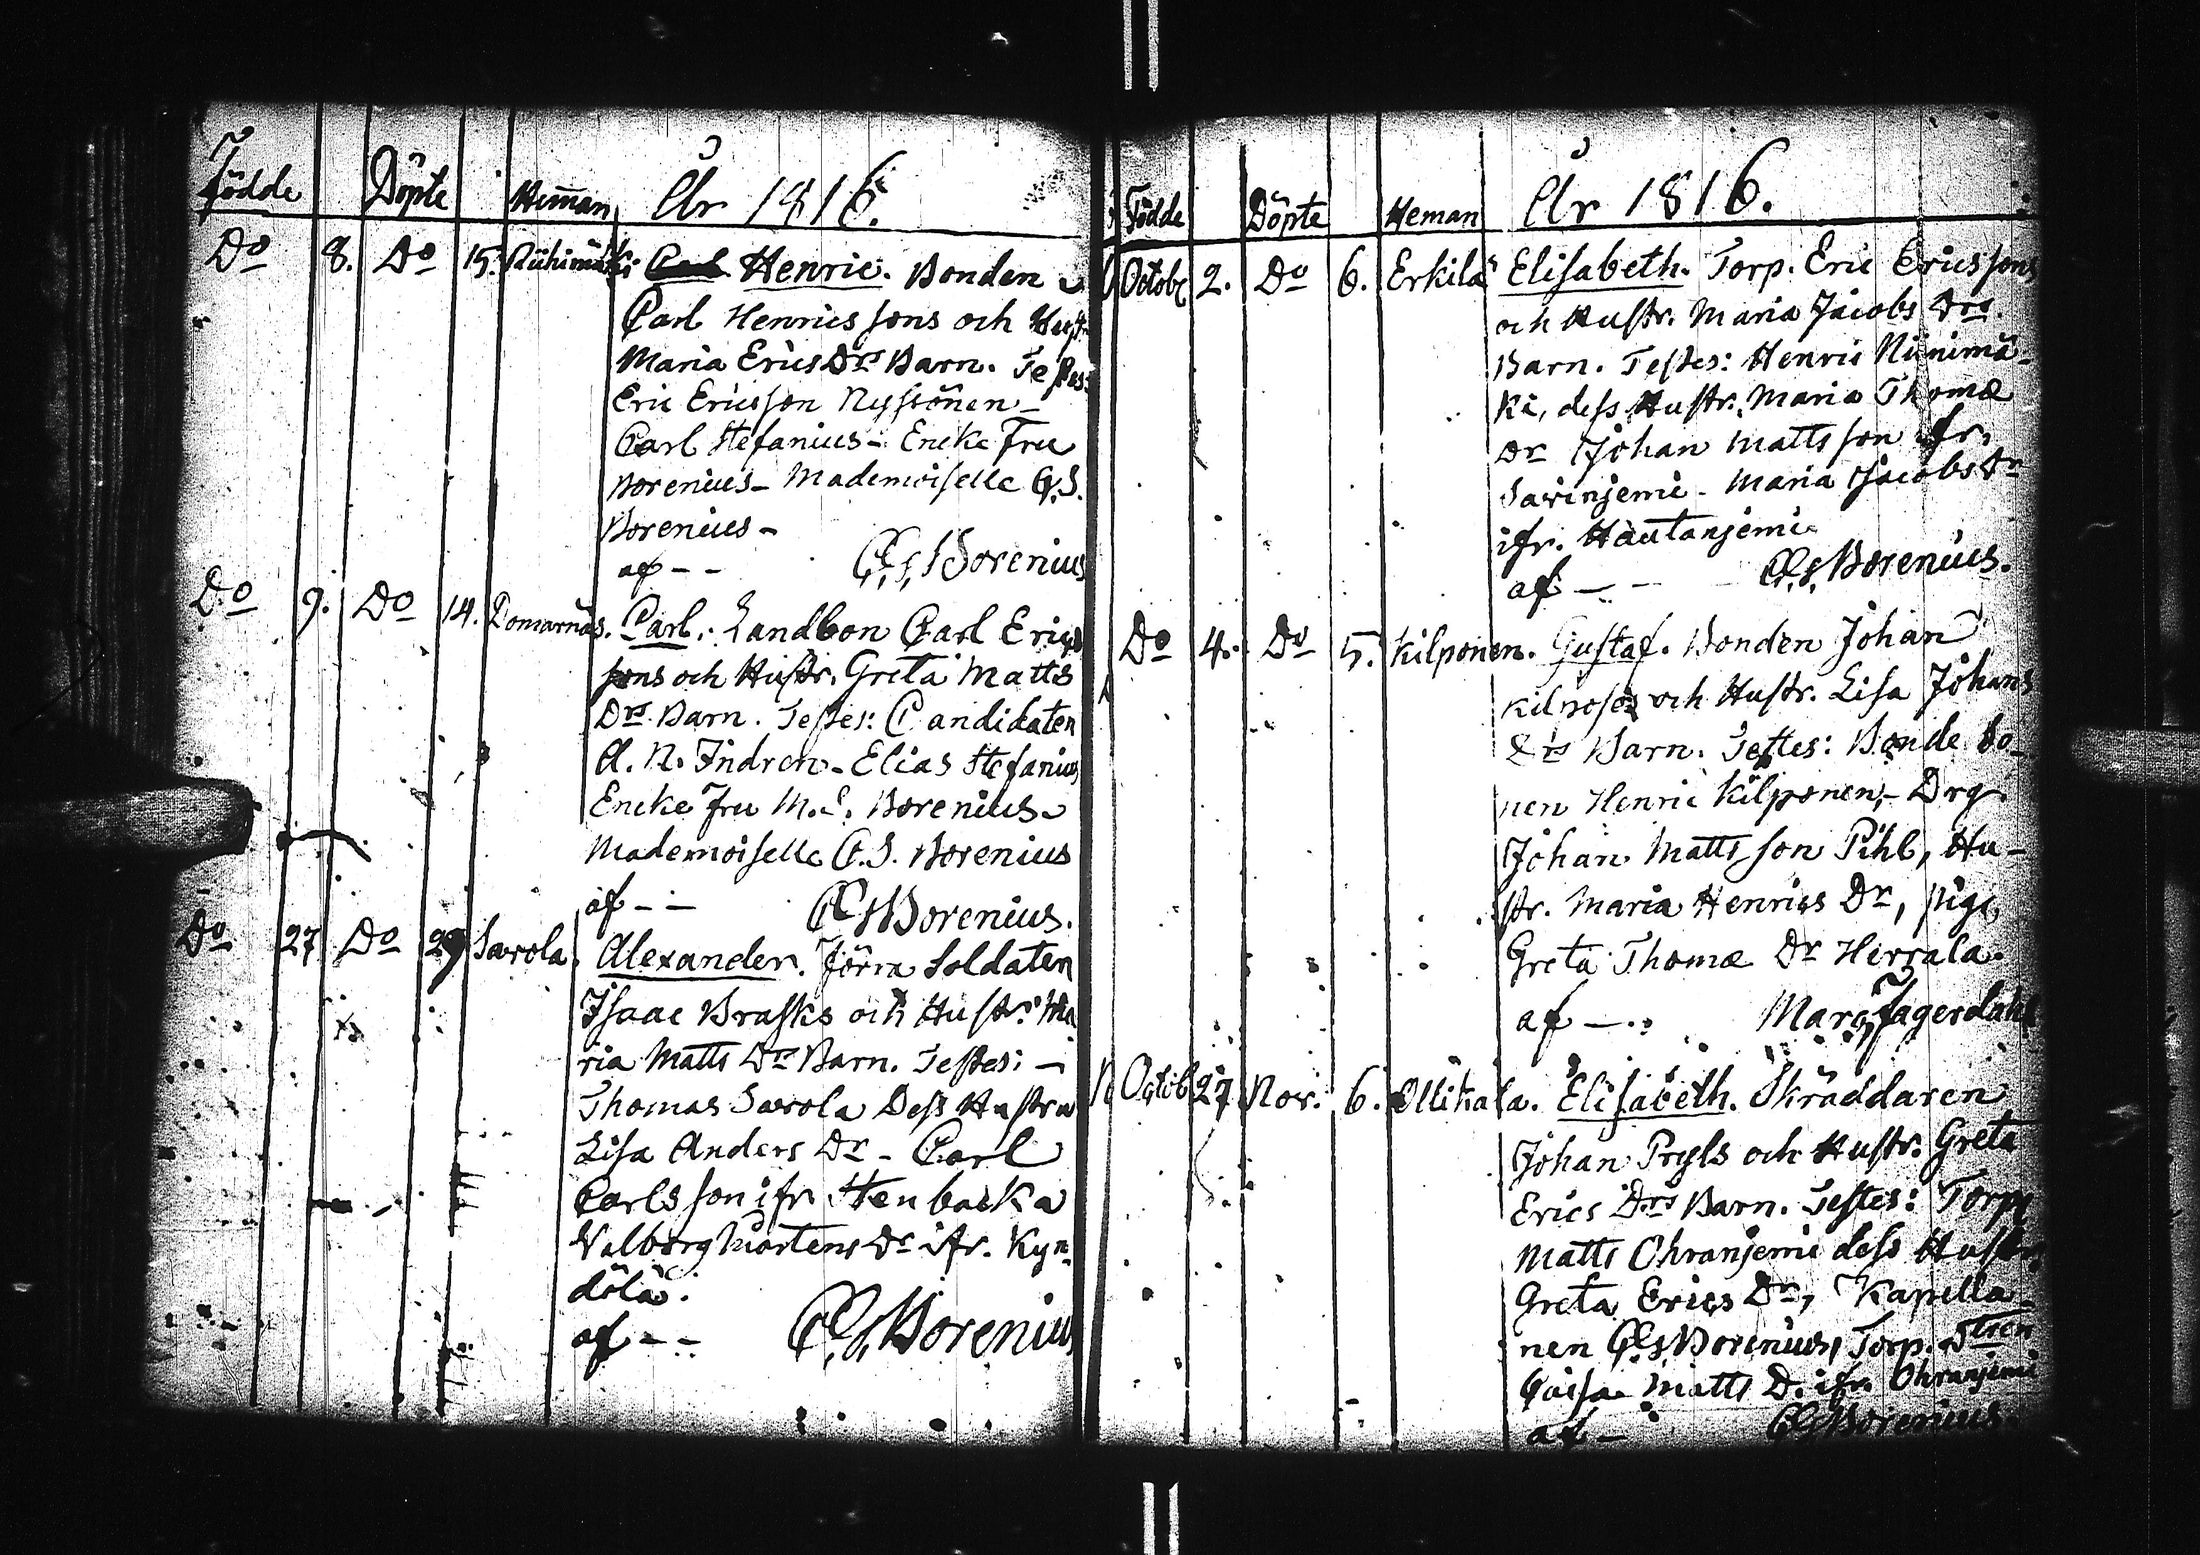 Födde Döpte Heman År 1816.
Do 8. Do 15. Riihimäki Carl Henric. Bonden
Carl Henricssons och Hust.
Maria Erics Drs Barn. Testes:
Eric Ericsson Nyssönen -
Carl Stefanius - Encke Fru
Borenius - Mademoiselle C. S.
Borenius -
af - - C. G. Borenius
Do 9. Do 14. Pomarnäs. Carl. Landbon Carl Erics
sons och Hustr. Greta Matts
Drs Barn. Testes: Candidaten
A. N. Indren - Elias Stefanius
Encke fru M. S. Borenius -
Mademoiselle C. S. Borenius
af - - C G Borenius.
Do 27 Do 29 Savola. Alexander. Förra Soldaten
Isaac Brasks och Hustr. Ma
ria Matts Drs Barn. Testes: -
Thomas Savola Dess Hustru
Lisa Anders Dr - Carl
Carlsson ifr. Stenbacka
Valborg Mårtens Dr ifr. Kyn-
dölä.
af - - C. G. Borenius
Födde Döpte Heman År 1816.
Octobr 2. Do 6. Erkilä Elisabeth. Torp. Eric Ericssons
och Hustr. Maria Jacobs Drs.
Barn. Testes: Henric Niinimä-
ki, dess Hustr. Maria Thomæ
Dr Johan Mattsson ifr.
Savinjemi - Maria Jacobs Dr
ifr. Hautanjemi
af - - C. G. Borenius.
Do 4. Do 5. Kilponen. Gustaf. Bonden Johan
och Hustr. Lisa Johans
Drs Barn. Testes: Bonde So-
nen Henric Kilponen, - Drg
Johan Mattsson Pihl, Hu-
str. Maria Henrics Dr, pig.
Greta Thomæ Dr Herrala.
af - . Marc. Fagerdahl
Octob 27 Nov. 6. Ollikala. Elisabeth. Skräddaren
Johan Pryls och Hustr. Greta
Erics Drs Barn. Testes: Torp
Matts Ohranjemi dess Hustr.
Greta Erics Dr, Kapella-
nen C G Borenius, Torp.
Caisa Matts D. ifr. Ohranjemi
af - C G Borenius.